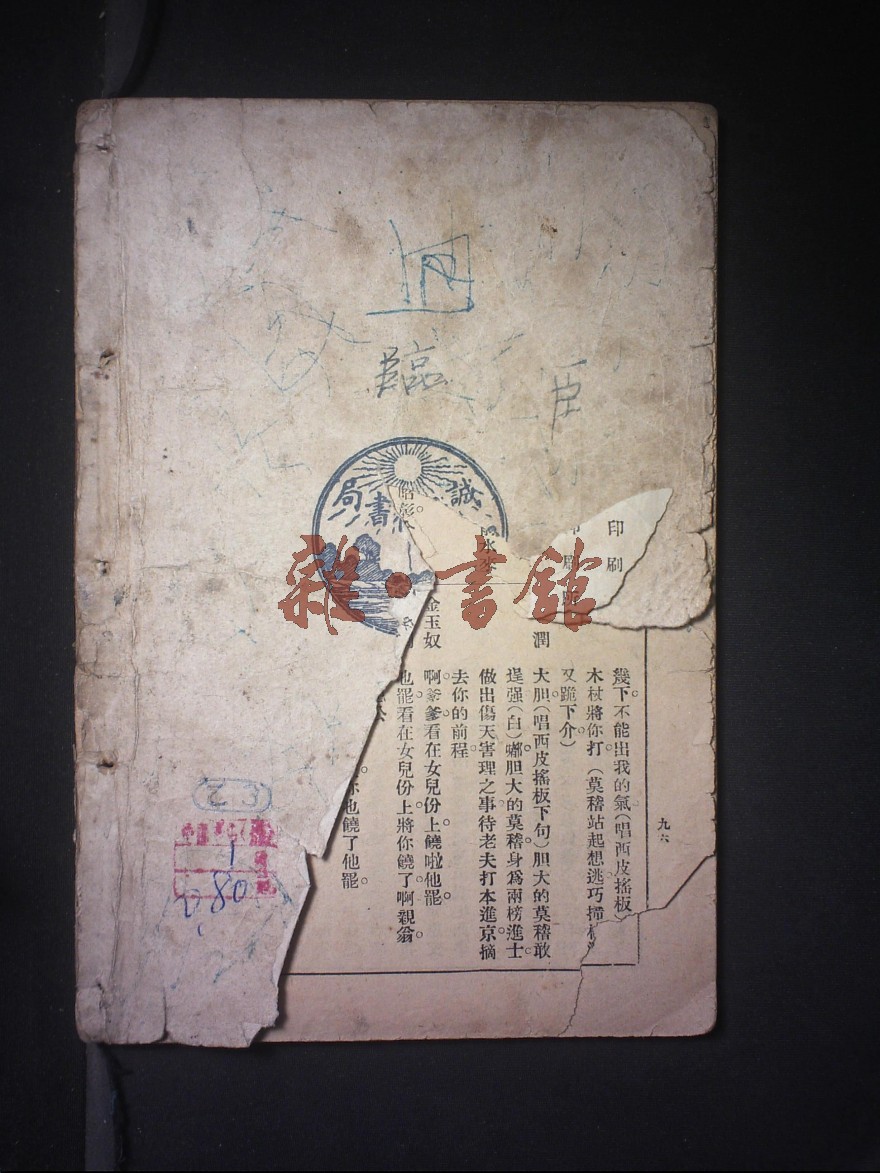 臨
臣
誠
書局
雜·書館
印刷
九六
幾下不能出我的氣(唱西皮搖板)
木杖將你打(莫稽站起想逃巧掃
又跪下介)
潤
大胆(唱西皮搖板下句)胆大的莫稽敢
逞强(白)嘟胆大的莫稽身爲兩榜進士
做出傷天害理之事待老夫打本進京摘
去你的前程
金玉奴
啊爹爹看在女兒份上饒啦他罷
也罷看在女兒份上將你饒了啊親翁
也饒了他罷
1
80